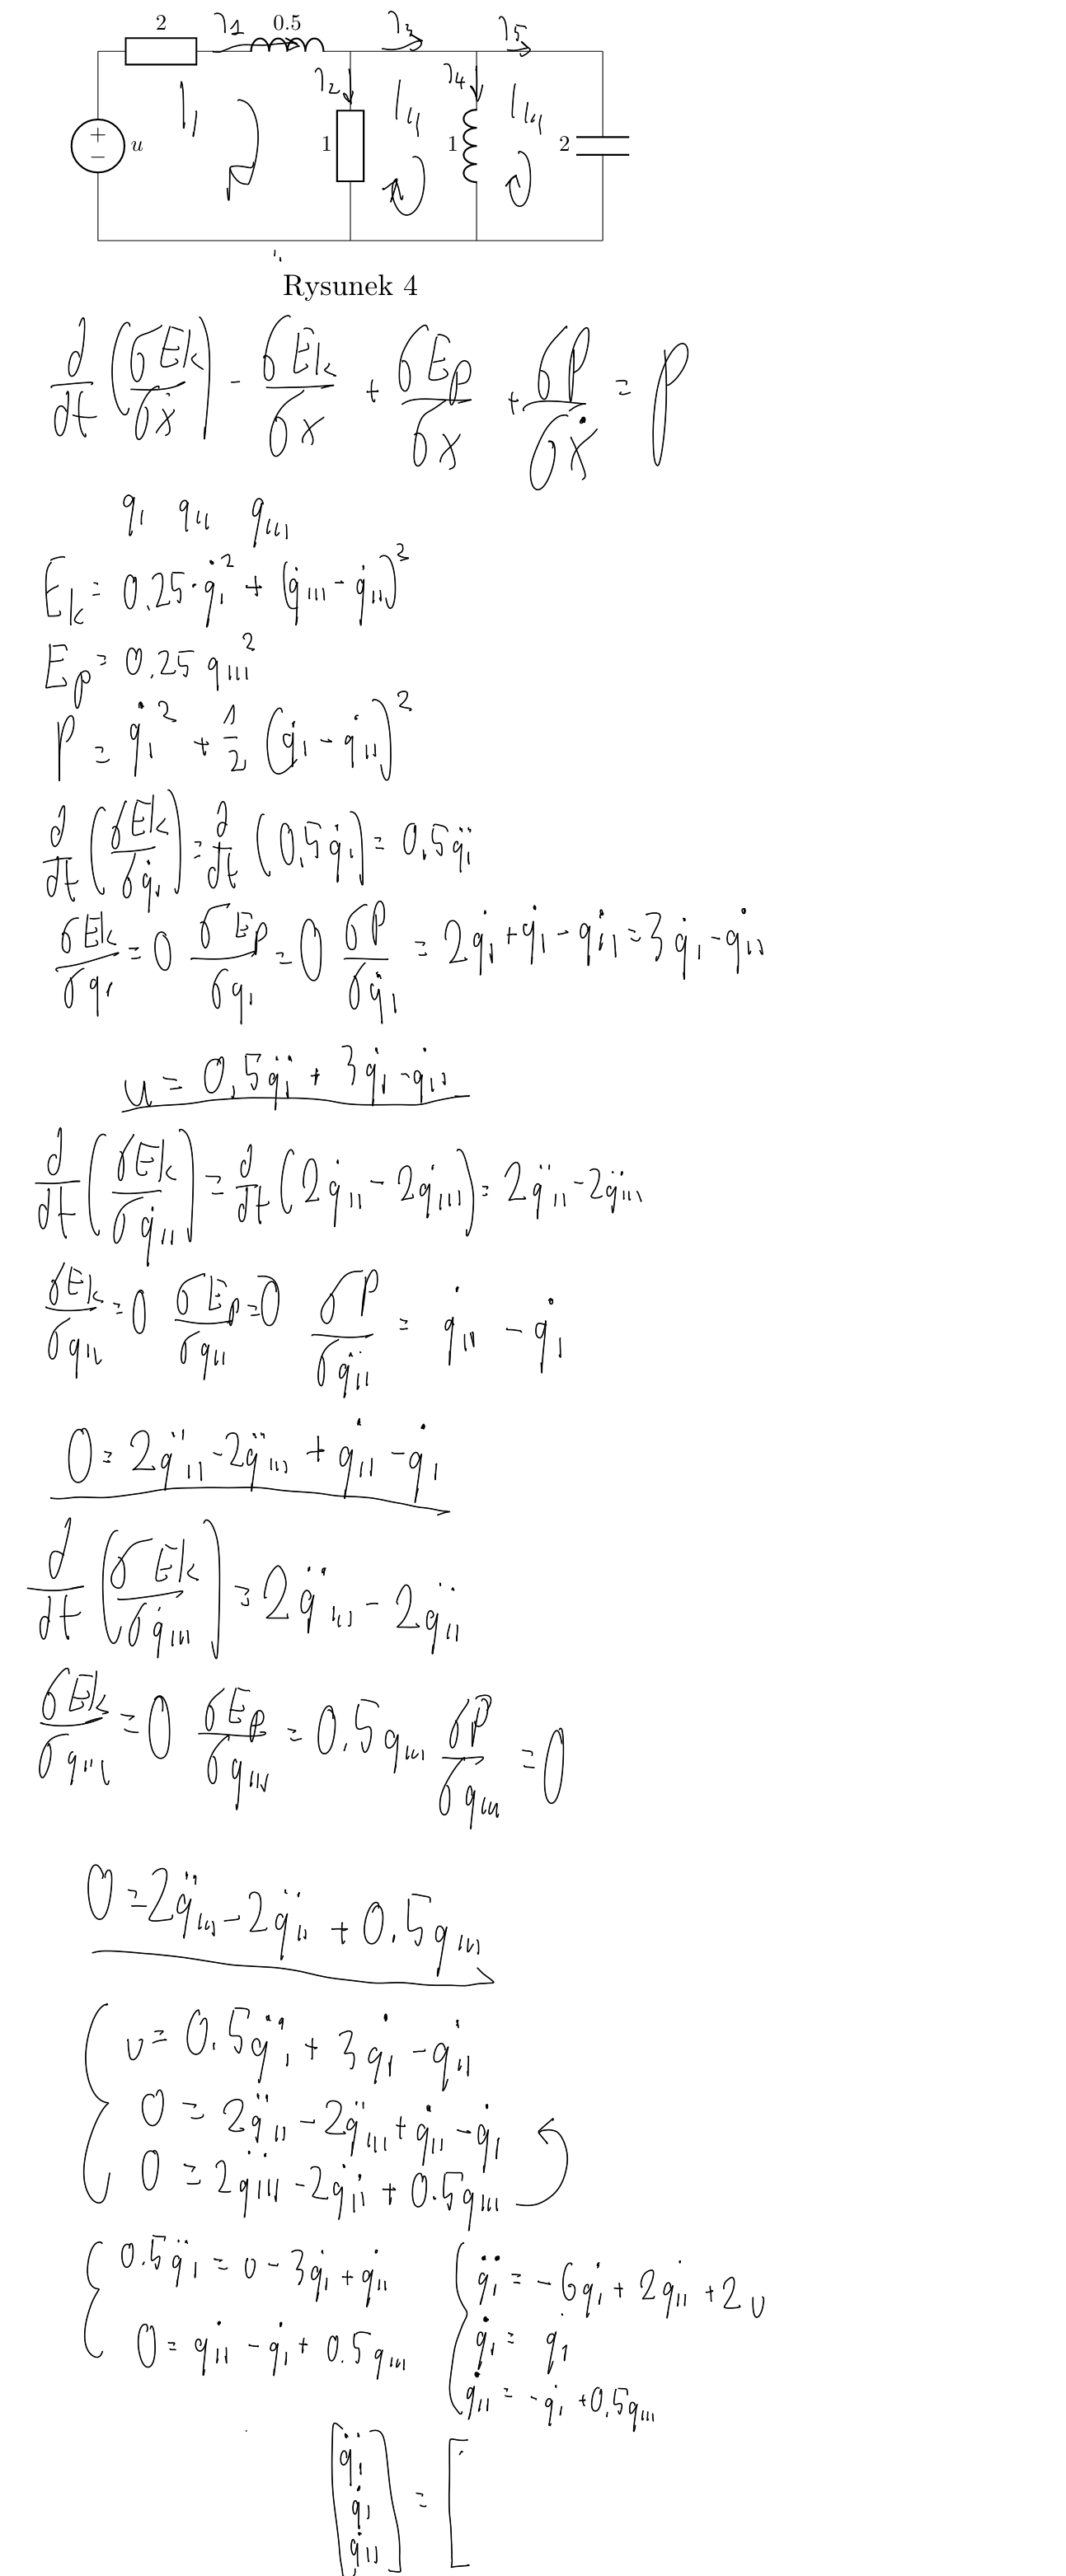 2 λ1 0.5 λ3 λ5
u I λ2 1 II λ4 1 III 2
Rysunek 4
d/dt (δEk/δẋ) - δEk/δx + δEp/δx + δP/δẋ = P
qI qII qIII
Ek = 0.25·q̇I² + (q̇III - q̇II)²
Ep = 0.25 qIII²
P = q̇I² + 1/2 (q̇I - q̇II)²
d/dt (δEk/δq̇I) = d/dt (0,5q̇I) = 0,5q̈I
δEk/δqI = 0 δEp/δqI = 0 δP/δq̇I = 2q̇I + q̇I - q̇II = 3q̇I - q̇II
u = 0,5q̈I + 3q̇I - q̇II
d/dt (δEk/δq̇II) = d/dt (2q̇II - 2q̇III) = 2q̈II - 2q̈III
δEk/δqII = 0 δEp/δqII = 0 δP/δq̈II = q̇II - q̇I
0 = 2q̈II - 2q̈III + q̇II - q̇I
d/dt (δEk/δq̇III) = 2q̈III - 2q̈II
δEk/δqIII = 0 δEp/δqIII = 0.5qIII δP/δqIII = 0
0 = 2q̈III - 2q̈II + 0.5qIII
u = 0.5q̈I + 3q̇I - q̇II
0 = 2q̈II - 2q̈III + q̇II - q̇I
0 = 2q̈III - 2q̈II + 0.5qIII
0.5q̈I = u - 3q̇I + q̇II q̈I = -6q̇I + 2q̇II + 2u
0 = q̇II - q̇I + 0.5qIII q̇I = q̇I
q̇II = -q̇I + 0,5qIII
[q̈I q̇I q̇II] = [